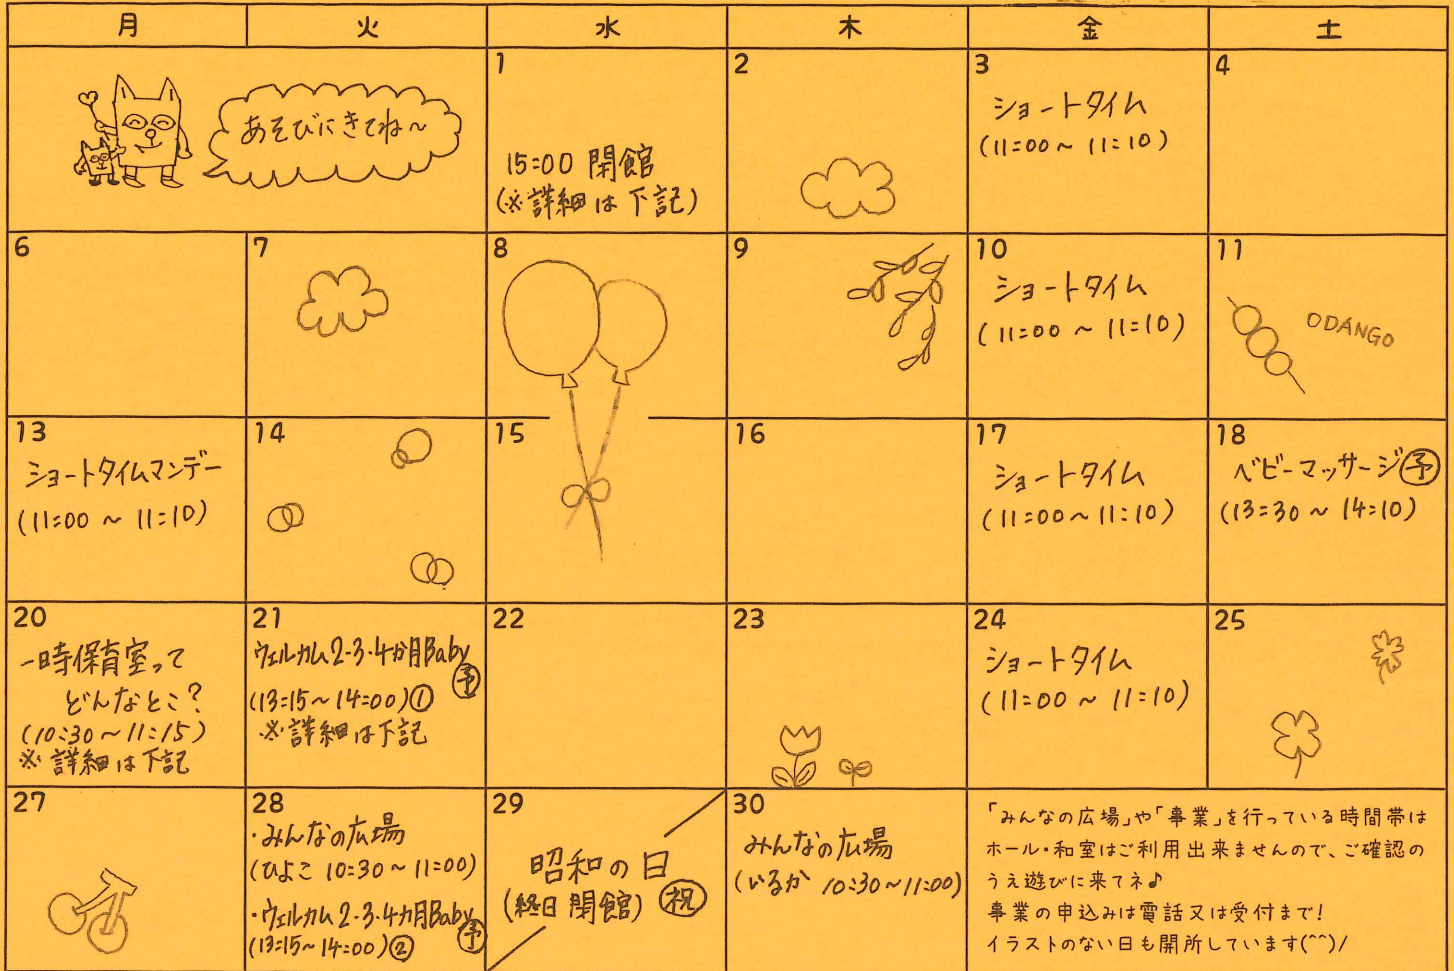 月 火 水 木 金 土
あそびにきてね～
1
15:00 閉館
(※詳細は下記)
2
3
ショートタイム
(11:00～11:10)
4
6
7
8
9
10
ショートタイム
(11:00～11:10)
11
ODANGO
13
ショートタイムマンデー
(11:00～11:10)
14
15
16
17
ショートタイム
(11:00～11:10)
18
ベビーマッサージ予
(13:30～14:10)
20
一時保育室って
どんなとこ?
(10:30～11:15)
※詳細は下記
21
ウェルカム2・3・4か月Baby
予
(13:15～14:00)①
※詳細は下記
22
23
24
ショートタイム
(11:00～11:10)
25
27
28
・みんなの広場
(ひよこ 10:30～11:00)
・ウェルカム2・3・4カ月Baby
予
(13:15～14:00)②
29
昭和の日
(終日閉館) 祝
30
みんなの広場
(いるか 10:30～11:00)
「みんなの広場」や「事業」を行っている時間帯は
ホール・和室はご利用出来ませんので、ご確認の
うえ遊びに来てネ♪
事業の申込みは電話又は受付まで!
イラストのない日も開所しています(^^)/